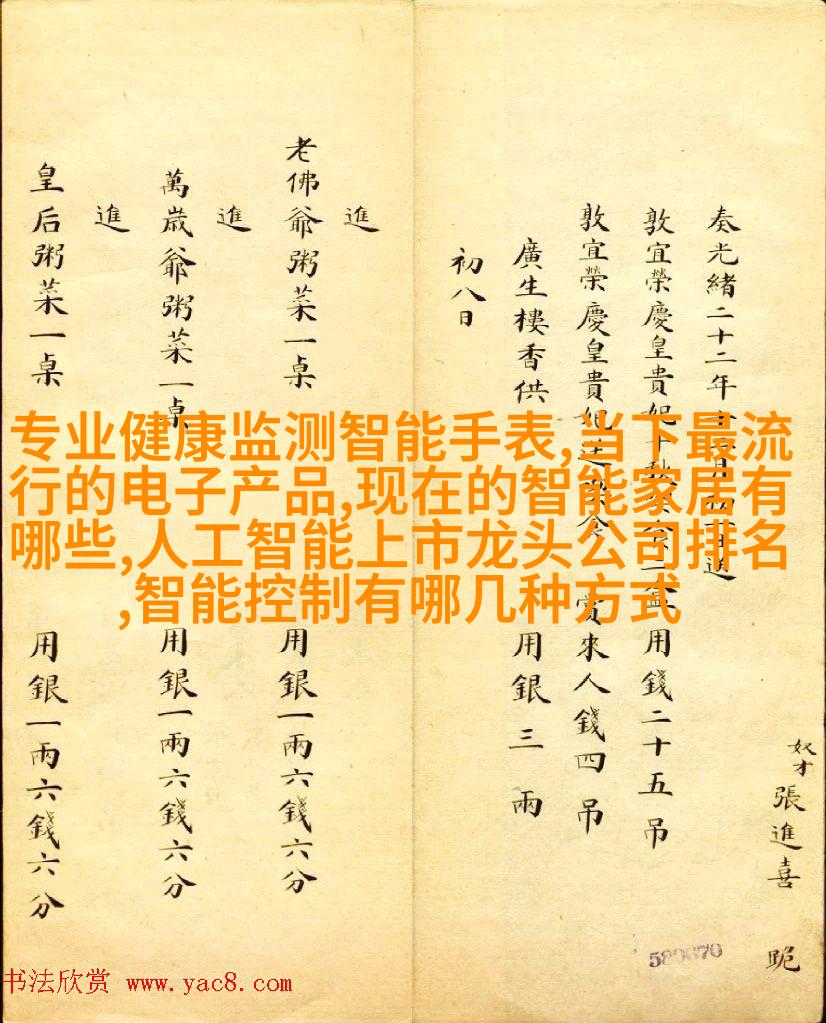 奴才張進喜 跪
奏光緒二十二年月送
敦宜榮慶皇貴妃二盒用錢二十五吊
敦宜榮慶皇貴妃送食賞來人錢四吊
廣生樓香供 用銀三兩
初八日
進
老佛爺粥菜一桌 用銀一兩六錢六分
進
萬歲爺粥菜一桌 用銀一兩六錢六分
進
皇后粥菜一桌 用銀一兩六錢六分
专业健康监测智能手表,当下最流
行的电子产品,现在的智能家居有
哪些,人工智能上市龙头公司排名
,智能控制有哪几种方式
书法欣赏 www.yac8.com